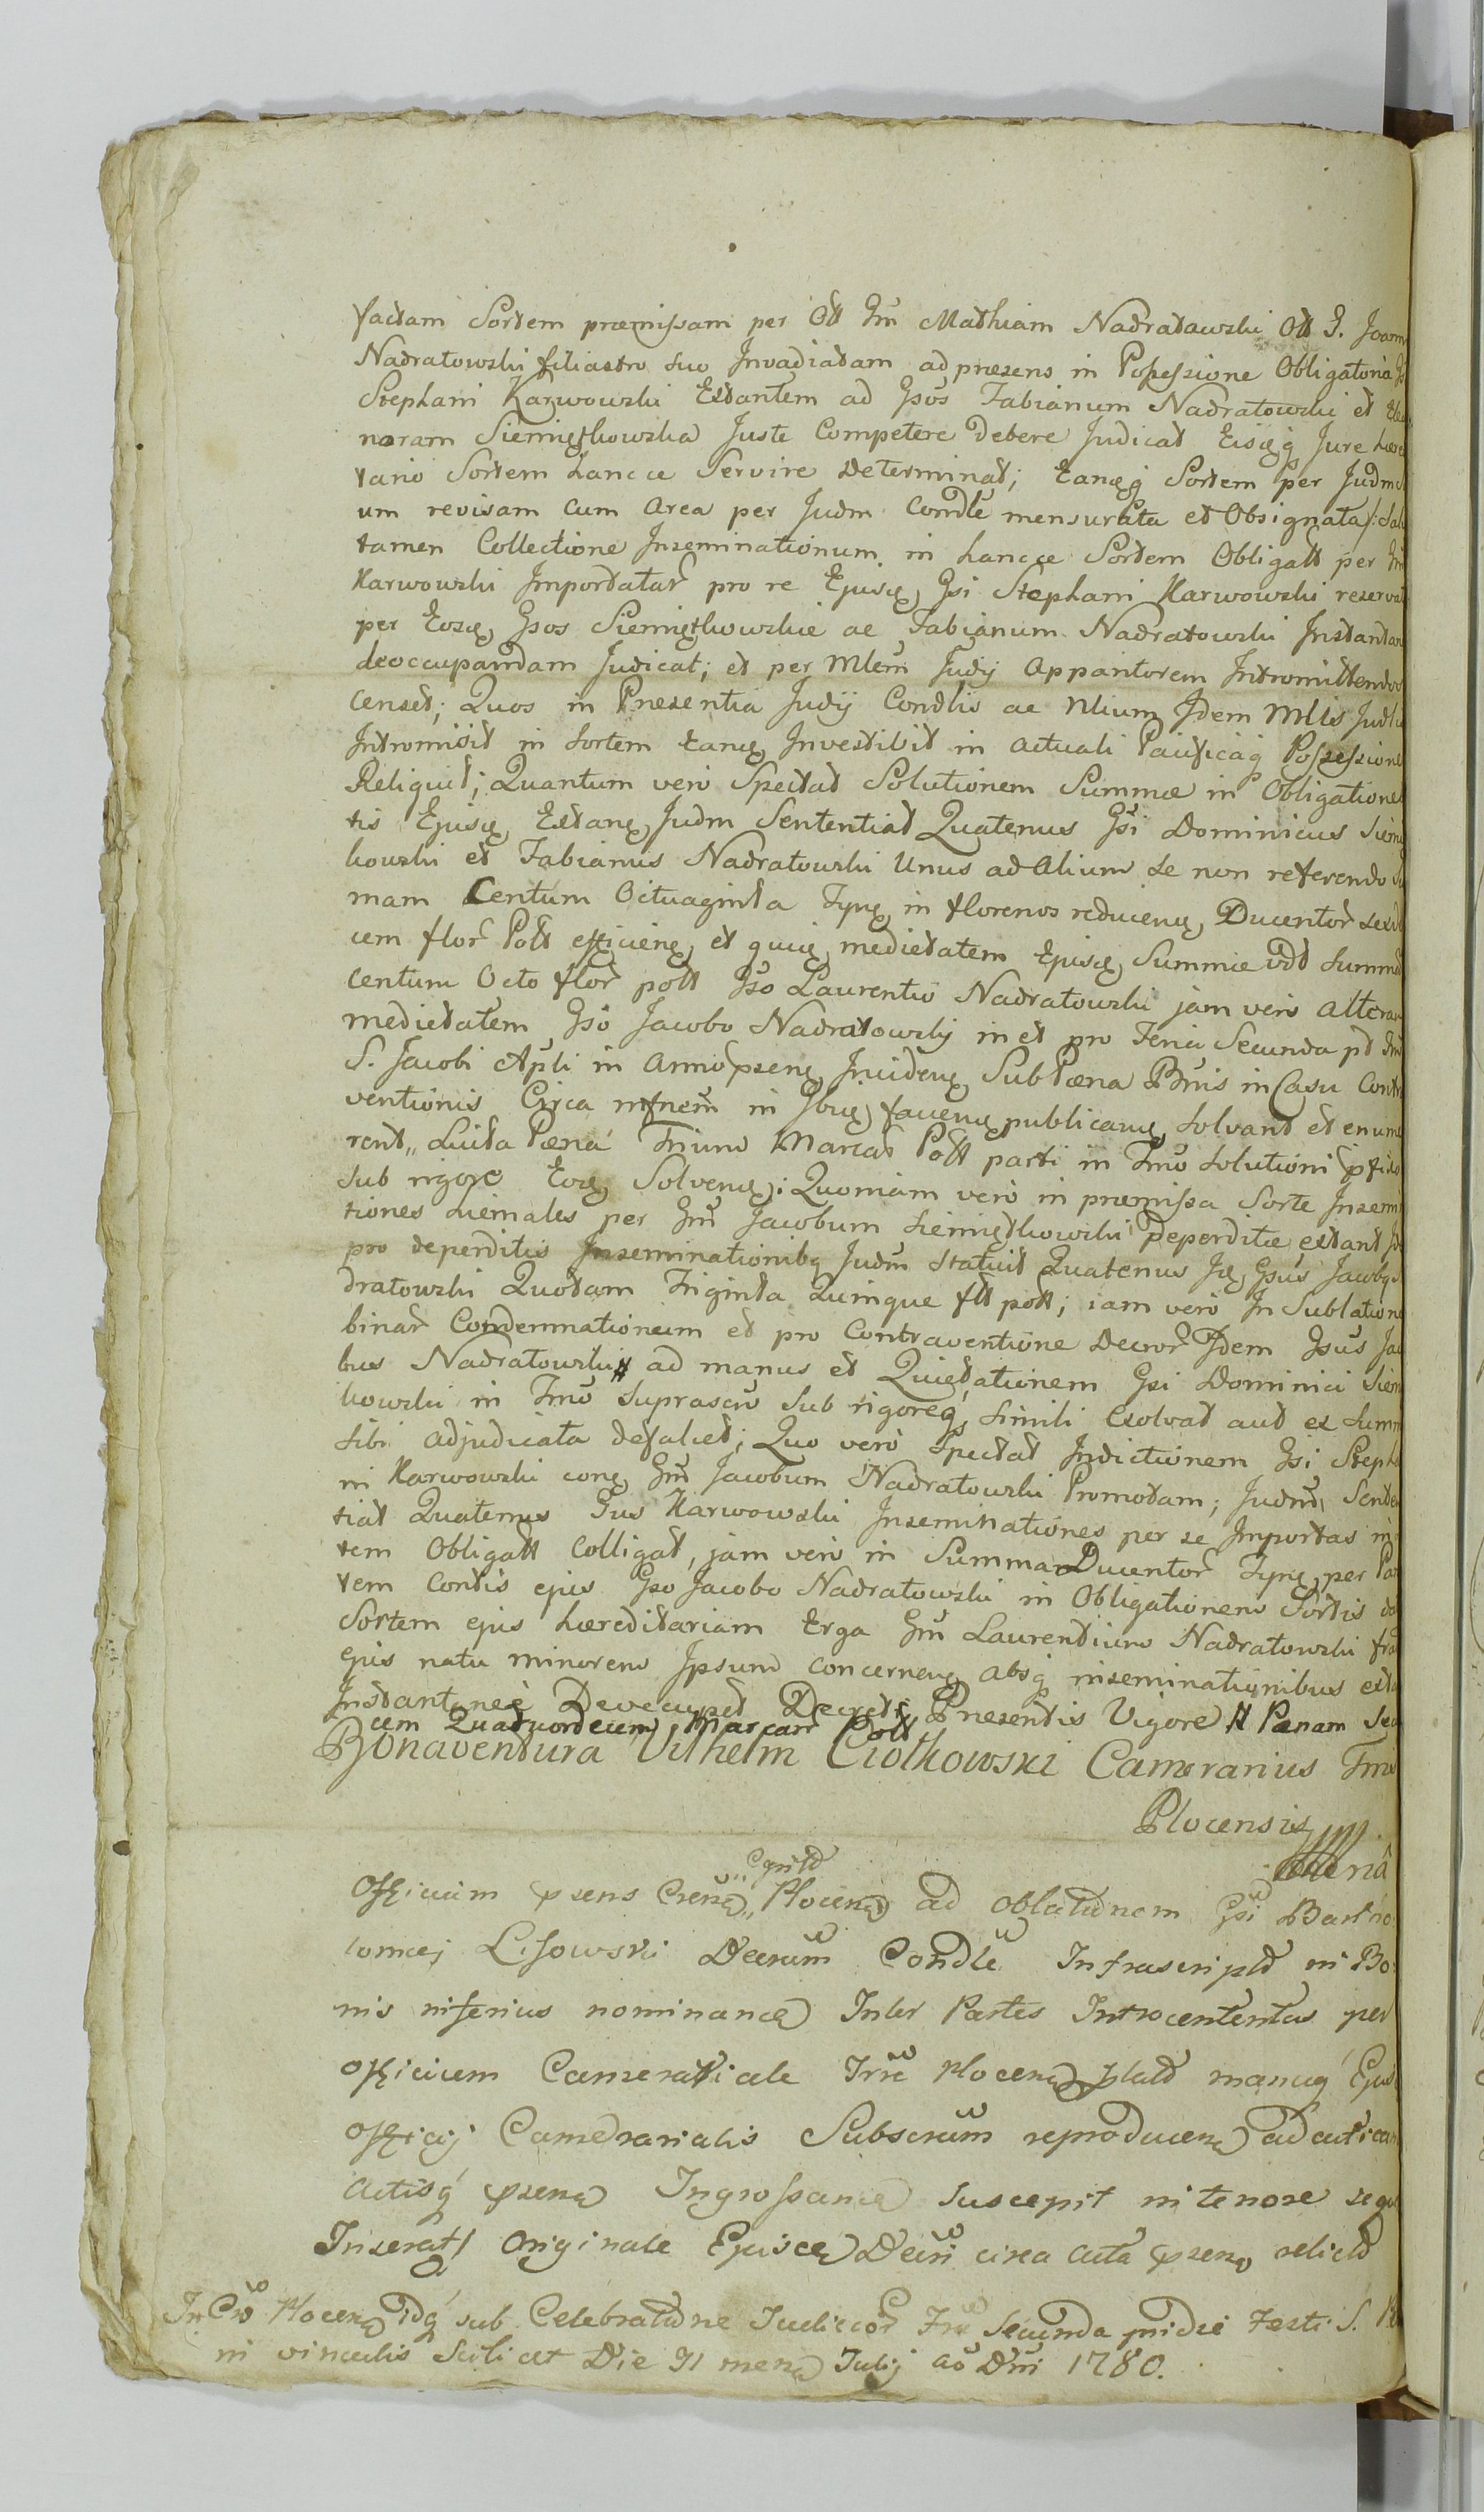 factam Sortem præmissam per Ott Gm Mathiam Nadratowski Ott G. Joann
Nadratowski filiastro suo Invadiatam ad præsens in Possessione Obligatoria
Stephani Karwowski Extantem ad Gsos Fabianum Nadratowski et Eleo
noram Siemiętkowska Juste Competere debere Judicat Eisq Jure hære
tario Sortem hancce Servire Determinat; Eanq Sortem per Judm
um revisam cum Area per Judm Condle mensurata et Obsignata /: Sal
tamen Collectione Inseminationum in hancce Sortem Obligatt per Gm
Karwowski Importatar pro re Ejusq Gsi Stephani Karwowski reservat
per Eosq Gsos Siemiętkowskie ac Fabianum Nadratowski Instantan
deoccupandam Judicat; et per Mlem Judij Apparitorem Intromittendos
censet; Quos in Præsentia Judij Condlis ac Nlium Idem Mlls Judlis
Intromisit in Sortem Eanq Investivit in actuali Pacificaq Possessione
Reliquit; Quantum vero Spectat Solutionem Summæ in Obligatione
tis Ejusq Extanq Judm Sententiat Quatenus Gsi Dominicus Siemię
kowski et Fabianus Nadratowski Unus ad Alium se non referendo Su
mam Centum Octuaginta Tynq in florenos reducenq Ducentor sexd
cem flor Poll efficienq et quiq medietatem Ejusq Summæ vdt summa
centum Octo flor poll Gso Laurentio Nadratowski jam vero alteram
medietatem Gso Jacobo Nadratowski in et pro Feria Secunda pd
S. Jacobi Apli in Anno præsenq Incidenq Sub Pæna Bnis in Casu Contra
ventionis Circa in Gbuq favenq publicanq solvant et enume
rent,, Luita Pæna Trium Marcar Poll parti in Tmo solutioni
Sub rigore Eoq Solvenq; Quoniam vero in præmissa Sorte Insemi
tiones hiemales per Gm Jacobum Siemiętkowski Deperditæ extant
pro deperditis Inseminationibq Judm Statuit Quatenus Gsus Jacobus
dratowski Quotam Triginta Quinque fll poll; iam vero In Sublatione
binar Condemnationum et pro Contraventione Decror Idem Gsus Jaco
bus Nadratowski ad manus et Quietationem Gsi Dominici Siem
kowski in Tmo Suprascro Sub rigoreq simili exolvat aut ex Summ
sibi adjudicata defalcet; Quo vero Spectat Indictionem Gsi Stepha
ni Karwowski conq Gm Jacobum Nadratowski Promotam; Judm Senten
tiat Quatenus Gus Karwowski Inseminationes per se Importas in
tem Obligatt Colligat, jam vero in Summa Ducentor Tynq per Par
tem Contis ejus Gso Jacobo Nadratowski in Obligationem Sortis
Sortem ejus hæreditariam Erga Gm Laurentium Nadratowski fra
ejus natu minorem Ipsum Concernenq absq inseminationibus exta
Instantanee Deoccupet Decreti Præsentis Vigore # Pænam Sed
cem Quatuordecem Marcarr Poll
Bonaventura Vilhelm Ciołkowski Camerarius Trræ
Plocensis
Officium præsens Crense,, Cgntd Plocense ad oblatdnem Gsi Bartho
lomæj Lisowski Decrum Condle Infrascriptd in Bo
nis inferius nominance Inter Partes Introcententas per
officium Camerariale Trræ Plocense latd manuq Ejusd
officij Camerarialis Subscrum reproducense ad actican
actisq præsense Ingrossance suscepit in tenore sequ
Inserat/ Originale Ejusce Decri circa acta præsens relictd
In Cro Plocense idq sub Celebratdne Judiccor Trræ Secunda pridie Festi S. P
in vinculis Scilicet Die 31 mense Julij ao Dni 1780.